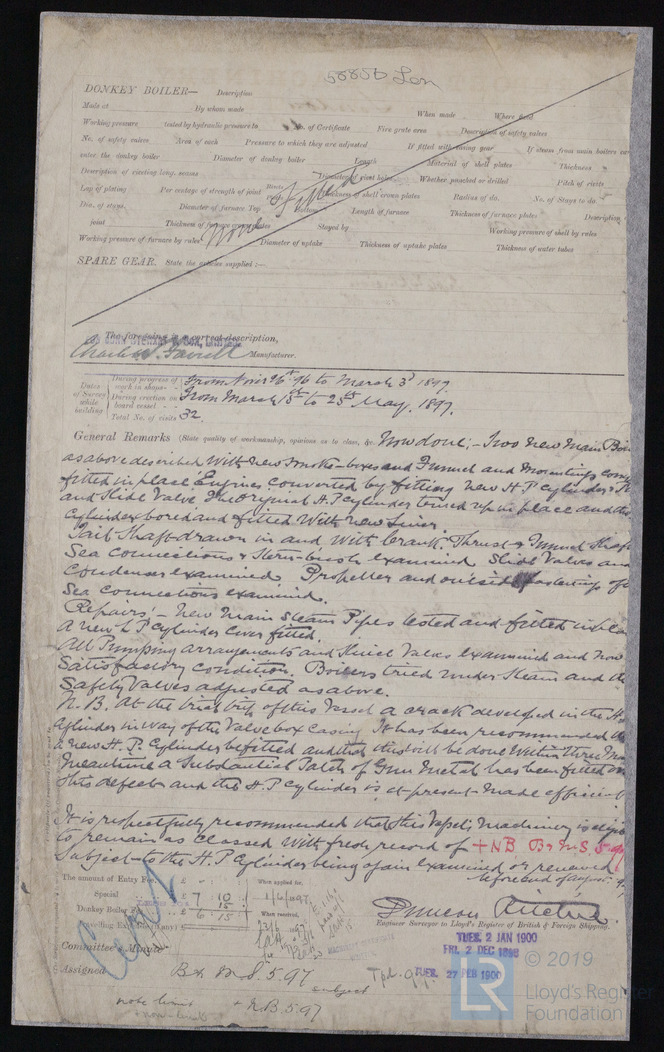 58856 Lon
DONKEY BOILER— Description
Made at By whom made When made Where fixed
Working pressure tested by hydraulic pressure to No. of Certificate Fire grate area Description of safety valves
No. of safety valves Area of each Pressure to which they are adjusted If fitted with easing gear If steam from main boilers can
enter the donkey boiler Diameter of donkey boiler Length Material of shell plates Thickness
Description of riveting long. seams Diameter of rivet holes Whether punched or drilled Pitch of rivets
Lap of plating Per centage of strength of joint Rivets Thickness of shell crown plates Radius of do. No. of Stays to do.
Dia. of stays. Diameter of furnace Top Bottom Length of furnace Thickness of furnace plates Description
joint Thickness of furnace crown plates Stayed by Working pressure of shell by rules
Working pressure of furnace by rules Diameter of uptake Thickness of uptake plates Thickness of water tubes
None fitted
SPARE GEAR. State the articles supplied :—
The foregoing is a correct description,
Manufacturer.
Dates of Survey while building
During progress of work in shops - - From Novr 26th 96 to March 3d 1897
During erection on board vessel - - From March 15th to 25th May, 1897.
Total No. of visits 32
General Remarks (State quality of workmanship, opinions as to class, &c. Now done:- Two New Main Boi
as above described with new smoke-boxes and Funnel and mountings comp
fitted in place Engines converted by fitting new H.P. Cylinder
and Slide Valve The original H.P. Cylinder turned up in place and the
Cylinder bored and fitted with new Liner.
Tail Shaft drawn in and with Crank, Thrust & Tunnel Shaft
Sea connections & Stern-bush examined Slide Valves and
Condenser examined Propeller and outside fastenings of
Sea connections examined.
Repairs:- New Main Steam Pipes tested and fitted in place
a new L.P. Cylinder Cover fitted.
All Pumping arrangements and Sluice Valves examined and now
Satisfactory condition. Boilers tried under Steam and the
Safety Valves adjusted as above.
N.B. At the trial trip of this Vessel a crack developed in the H.
Cylinder in way of the Valve box Casing It has been recommended
a new H.P. Cylinder be fitted and that this will be done within three Mo
Meantime a Substantial Patch of Gun Metal has been fitted on
this defect and the H.P. Cylinder is at present made efficient
It is respectfully recommended that this Vessel's Machinery is eligib
to remain as classed with fresh record of + NB. B & M.S. 5.97
Subject to the H.P. Cylinder being again examined or renewed
before end of August 97
The amount of Entry Fee . . £ When applied for,
Special . . £ 7 . 10 . 1/6/1897
Donkey Boiler Fee . . £ 15
£ 6 . 15 When received,
Travelling Expenses (if any)
Duncan Ritchie.
Engineer Surveyor to Lloyd's Register of British & Foreign Shipping.
Committee's Minute
TUES. 2 JAN 1900
FRI. 2 DEC 1898
TUES. 27 FEB 1900
Assigned B & M.S. 5.97
subject
+ N.B. 5.97
note limit
© 2019
LR
Lloyd's Register
Foundation